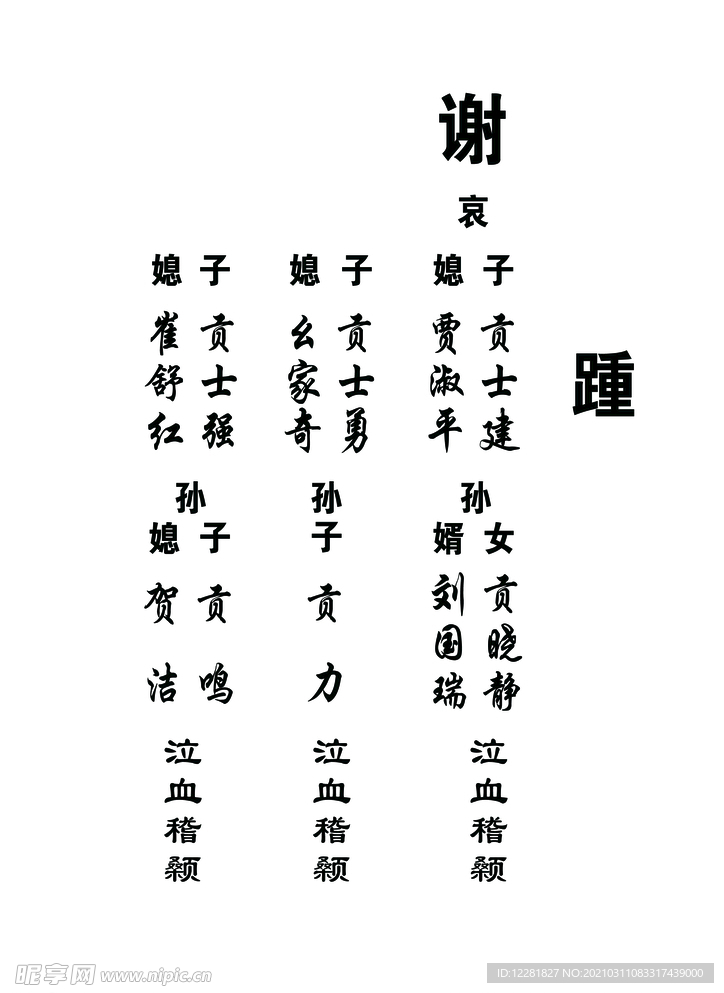 踵
谢
哀
子 贡士建
媳 贾淑平
孙
女 贡晓静
婿 刘国瑞
泣血稽颡
子 贡士勇
媳 幺家奇
孙子 贡力
泣血稽颡
子 贡士强
媳 崔舒红
孙
子 贡鸣
媳 贺洁
泣血稽颡
昵享网 www.nipic.cn
ID:12281827 NO:20210311083317439000